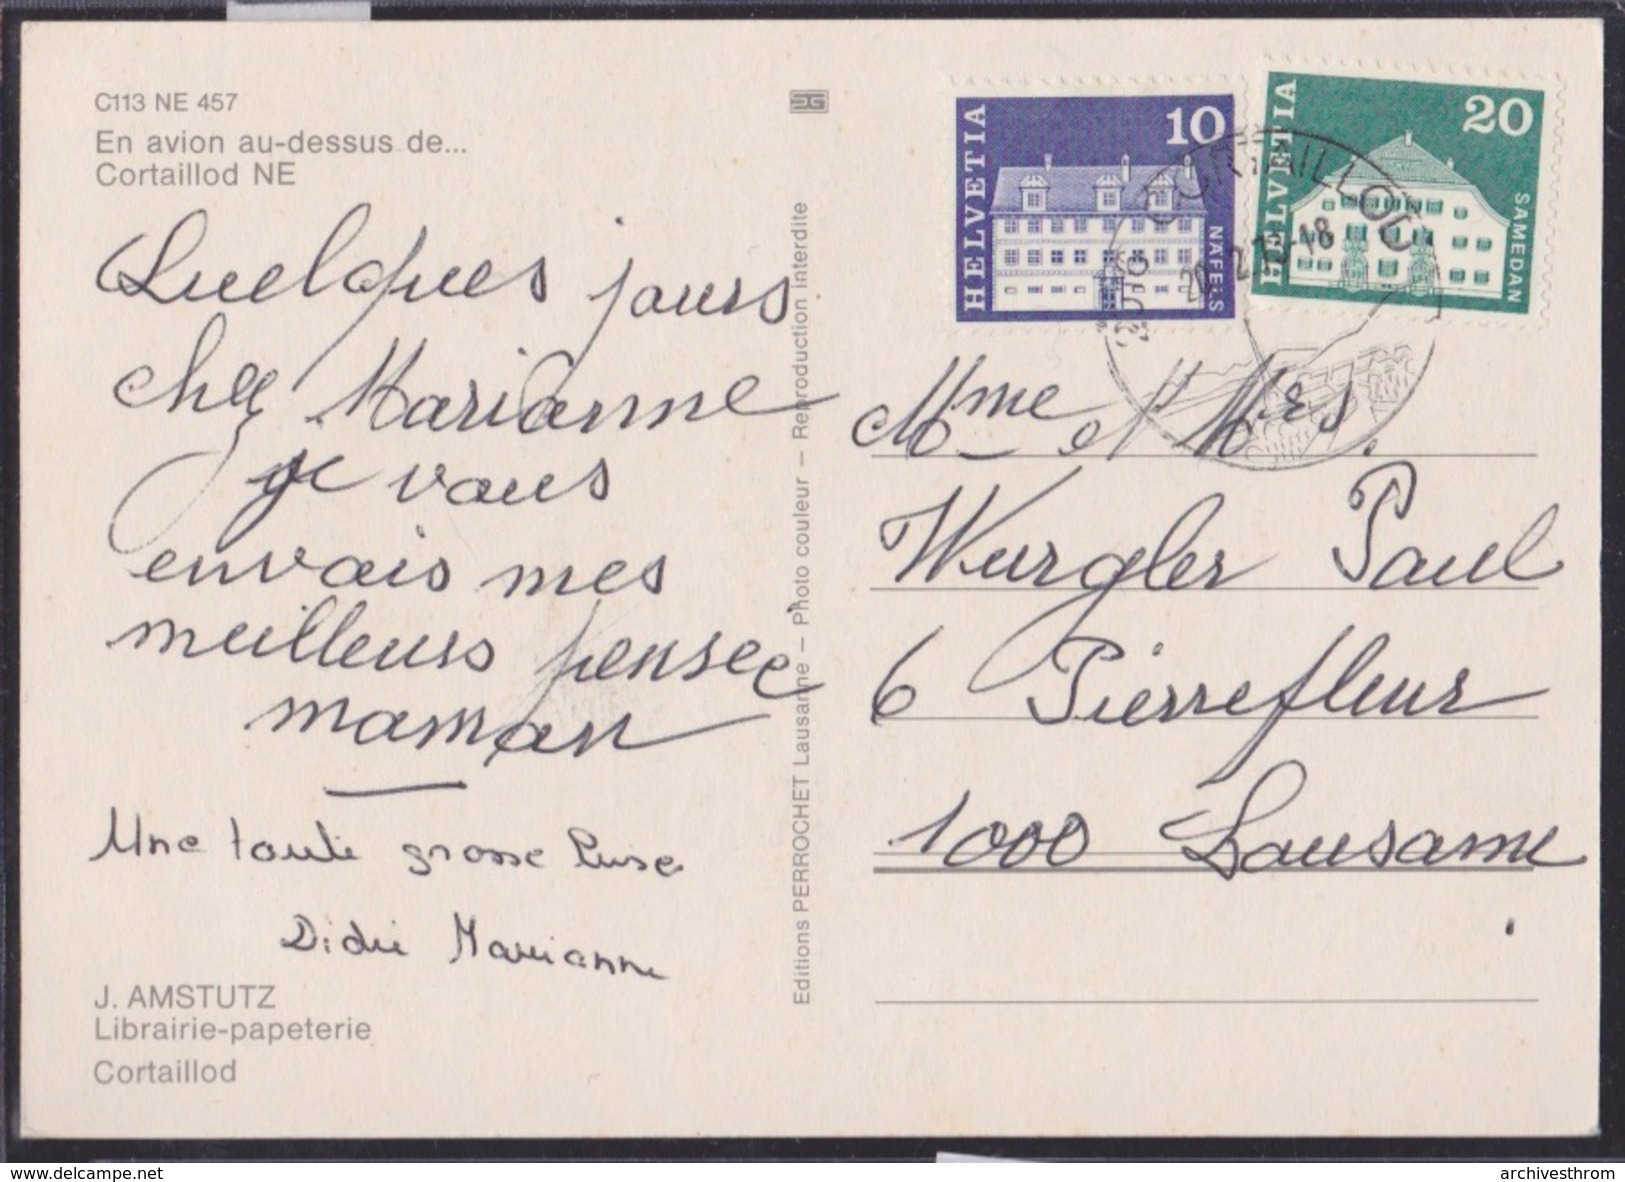 C113 NE 457
En avion au-dessus de...
Cortaillod NE
Quelques jours
chez Marianne
je vous
envois mes
meilleurs pensée
maman
Une toute grosse bise
Didie Marianne
J. AMSTUTZ
Librairie-papeterie
Cortaillod
Editions PERROCHET Lausanne – Photo couleur – Reproduction interdite
HELVETIA
10
NÄFELS
HELVETIA
20
SAMEDAN
CORTAILLOD
-18
Mme Mrs.
Wurgler Paul
6 Pierrefleur
1000 Lausanne
www.delcampe.net
archivesthrom